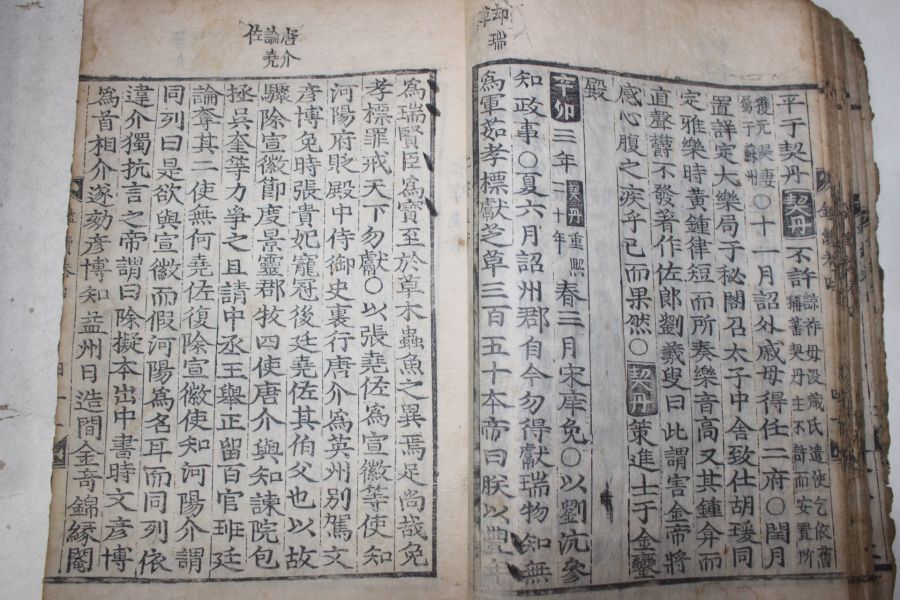 却瑞草
平于契丹契丹不許諒祚母没藏氏遣使乞依舊稱藩契丹主不許而安置所
獲元昊妻于蘇州○十一月詔外戚毋得任二府○閏月
置詳定大樂局于秘閣召太子中舍致仕胡瑗同
定雅樂時黃鍾律短而所奏樂音高又其鍾弇而
直聲欝不發著作佐郎劉羲叟曰此謂害金帝將
感心腹之疾乎已而果然○契丹策進士于金鑾
殿
辛卯三年契丹重熙二十年春三月宋庠免○以劉沆參
知政事○夏六月詔州郡自今勿得獻瑞物知無
爲軍茹孝標獻芝草三百五十本帝曰朕以豊年
唐介論堯佐
爲瑞賢臣爲寶至於草木蟲魚之異焉足尚哉免
孝標罪戒天下勿獻○以張堯佐爲宣徽等使知
河陽府貶殿中侍御史裏行唐介爲英州別駕文
彥博免時張貴妃寵冠後廷堯佐其伯父也以故
驟除宣徽節度景靈郡牧四使唐介與知諫院包
拯吳奎等力爭之且請中丞王擧正留百官班廷
論奪其二使無何堯佐復除宣徽使知河陽介謂
同列曰是欲與宣徽而假河陽爲名耳而同列依
違介獨抗言之帝謂曰除擬本出中書時文彥博
爲首相介遂劾彥博知益州日造間金奇錦緣閹